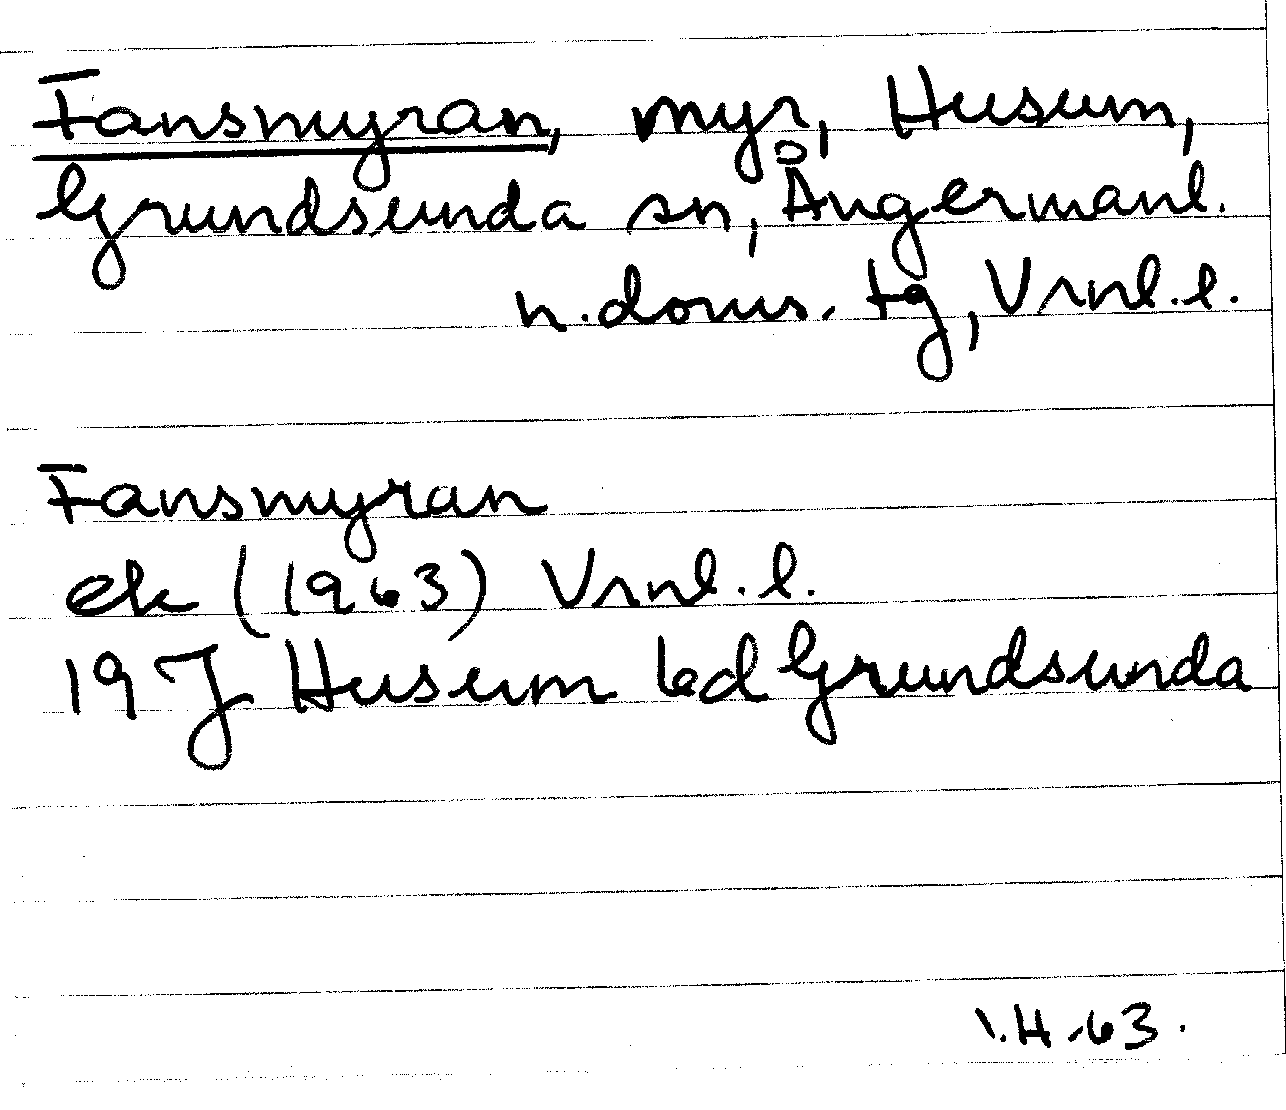 Fansmyran, myr, Husum,
Grundsunda sn, Ångermanl.
n. doms. tg, Vrnl. l.
Fansmyran
ek (1963) Vrnl. l.
19 J Husum Grundsunda
I.H. 63.